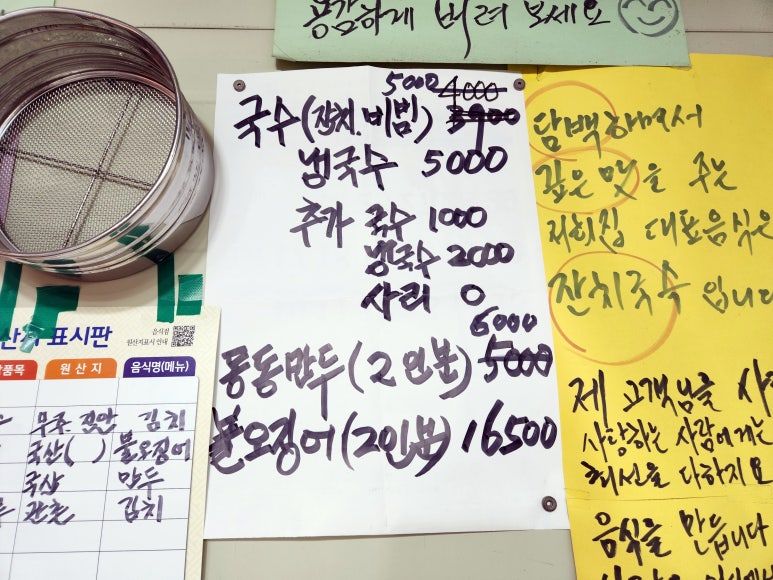 용감하게 버려 보세요
5000 4000
국수(잔치.비빔) 3900
냉국수 5000
추가 국수 1000
냉국수 2000
사리 0
6000
몽동만두(2인분) 5000
불오징어(2인분) 16500
담백하면서
깊은 맛을 주는
저희집 대표음식은
잔치국수 입니다
제 고객님을
사랑하는 사람에게는
최선을 다하지요
음식을 만듭니다
표시판
음식점
원산지표시 안내
품목 원산지 음식명(메뉴)
무주 김치
국산( ) 불오징어
국산 만두
김치